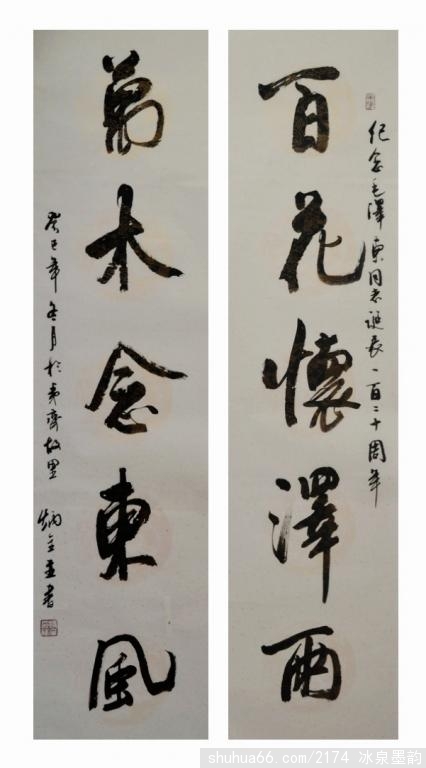 紀念毛澤東同志誕辰一百二十周年
百花懷澤雨
萬木念東風
癸巳年冬月於夷齊故里
炳
書
shuhua66.com/2174 冰泉墨韵